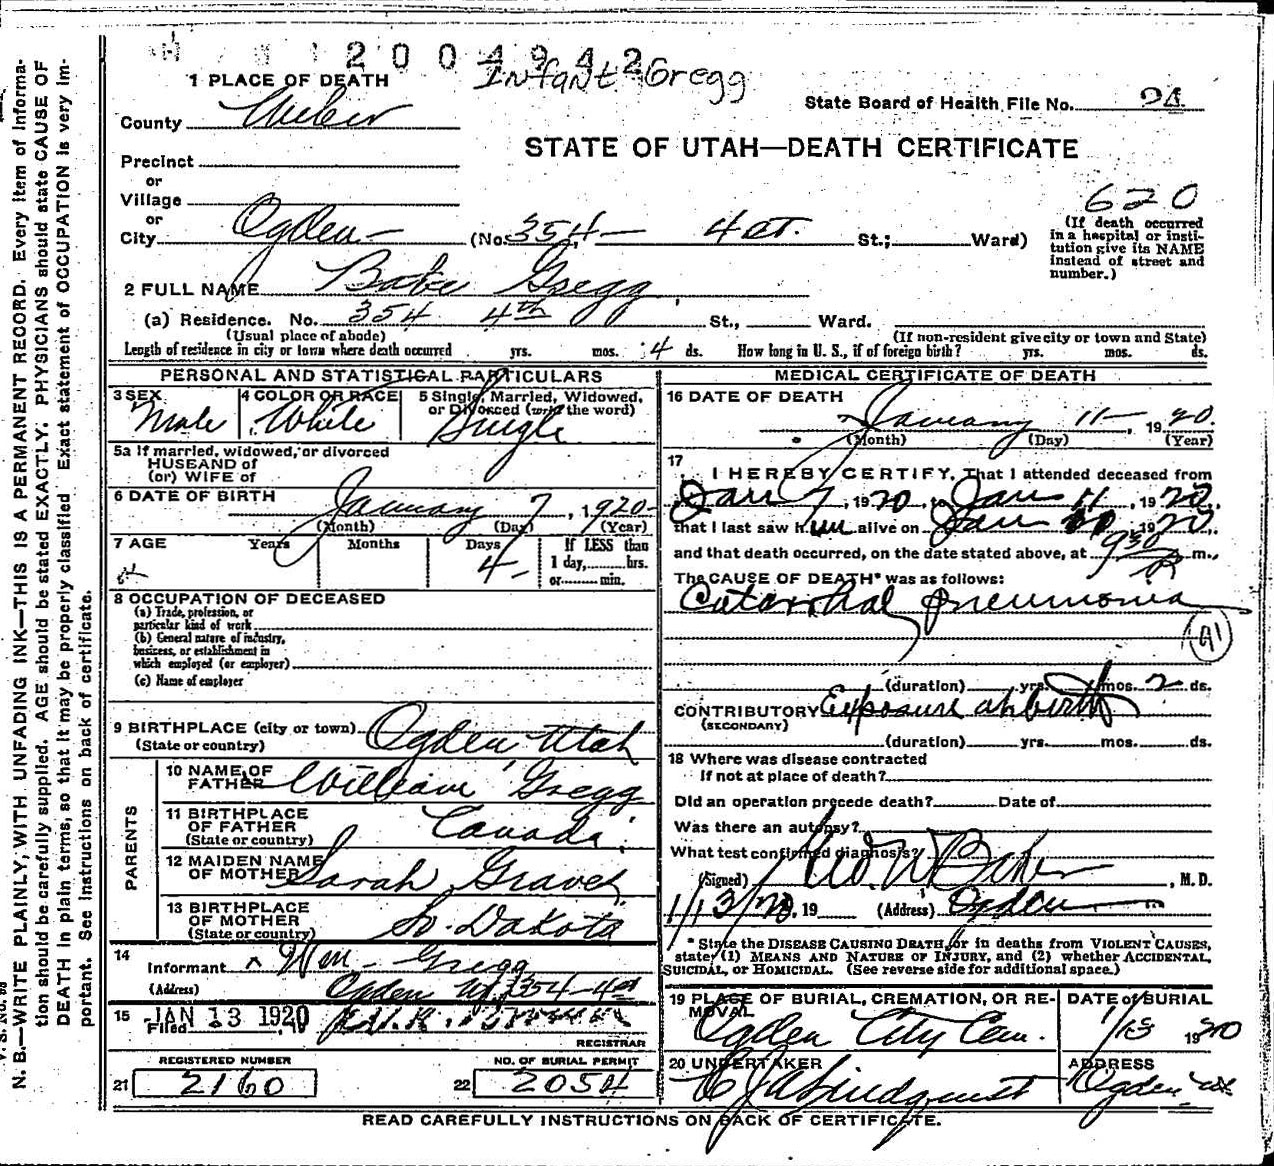 2004942
Infant Gregg
1 PLACE OF DEATH
State Board of Health File No. 24
County Weber
STATE OF UTAH—DEATH CERTIFICATE
Precinct
or
Village
or
620
City Ogden (No. 354 4 St.; Ward)
(If death occurred in a hospital or institution give its NAME instead of street and number.)
2 FULL NAME Babe Gregg
(a) Residence. No. 354 4th St., Ward.
(Usual place of abode) (If non-resident give city or town and State)
Length of residence in city or town where death occurred yrs. mos. 4 ds. How long in U. S., if of foreign birth? yrs. mos. ds.
PERSONAL AND STATISTICAL PARTICULARS
3 SEX Male
4 COLOR OR RACE White
5 Single, Married, Widowed, or Divorced (write the word) Single
5a If married, widowed, or divorced
HUSAND of
(or) WIFE of
6 DATE OF BIRTH
January 7, 1920
(Month) (Day) (Year)
7 AGE Years Months Days 4
If LESS than
1 day, hrs.
or min.
8 OCCUPATION OF DECEASED
(a) Trade, profession, or
particular kind of work
(b) General nature of industry,
business, or establishment in
which employed (or employer)
(c) Name of employer
9 BIRTHPLACE (city or town) Ogden, Utah
(State or country)
PARENTS
10 NAME OF FATHER William Gregg
11 BIRTHPLACE OF FATHER Canada
(State or country)
12 MAIDEN NAME OF MOTHER Sarah Graves
13 BIRTHPLACE OF MOTHER So. Dakota
(State or country)
14
Informant Wm Gregg
(Address) Ogden Ut 354-4st
15
Filed JAN 13 1920
REGISTRAR
REGISTERED NUMBER
21 2160
NO. OF BURIAL PERMIT
22 2054
MEDICAL CERTIFICATE OF DEATH
16 DATE OF DEATH
January 11, 1920.
(Month) (Day) (Year)
17
I HEREBY CERTIFY, That I attended deceased from
Jan 7, 1920, to Jan 11, 1920,
that I last saw him alive on Jan 1920,
and that death occurred, on the date stated above, at 930 P m.,
The CAUSE OF DEATH* was as follows:
Catarrhal pneumonia
91
(duration) yrs. mos. 2 ds.
CONTRIBUTORY Exposure at birth
(SECONDARY)
(duration) yrs. mos. ds.
18 Where was disease contracted
If not at place of death?
Did an operation precede death? Date of
Was there an autopsy?
What test confirmed diagnosis?
(Signed) , M. D.
1/13/20, 19 (Address) Ogden
* State the DISEASE CAUSING DEATH, or in deaths from VIOLENT CAUSES,
state (1) MEANS AND NATURE OF INJURY, and (2) whether ACCIDENTAL,
SUICIDAL, or HOMICIDAL. (See reverse side for additional space.)
19 PLACE OF BURIAL, CREMATION, OR REMOVAL
Ogden City Cem.
DATE of BURIAL
1/13 1920
20 UNDERTAKER
Lindquist
ADDRESS
Ogden Ut.
READ CAREFULLY INSTRUCTIONS ON BACK OF CERTIFICATE.
N. B.—WRITE PLAINLY, WITH UNFADING INK—THIS IS A PERMANENT RECORD. Every item of informa-
tion should be carefully supplied. AGE should be stated EXACTLY. PHYSICIANS should state CAUSE OF
DEATH in plain terms, so that it may be properly classified. Exact statement of OCCUPATION is very im-
portant. See instructions on back of certificate.